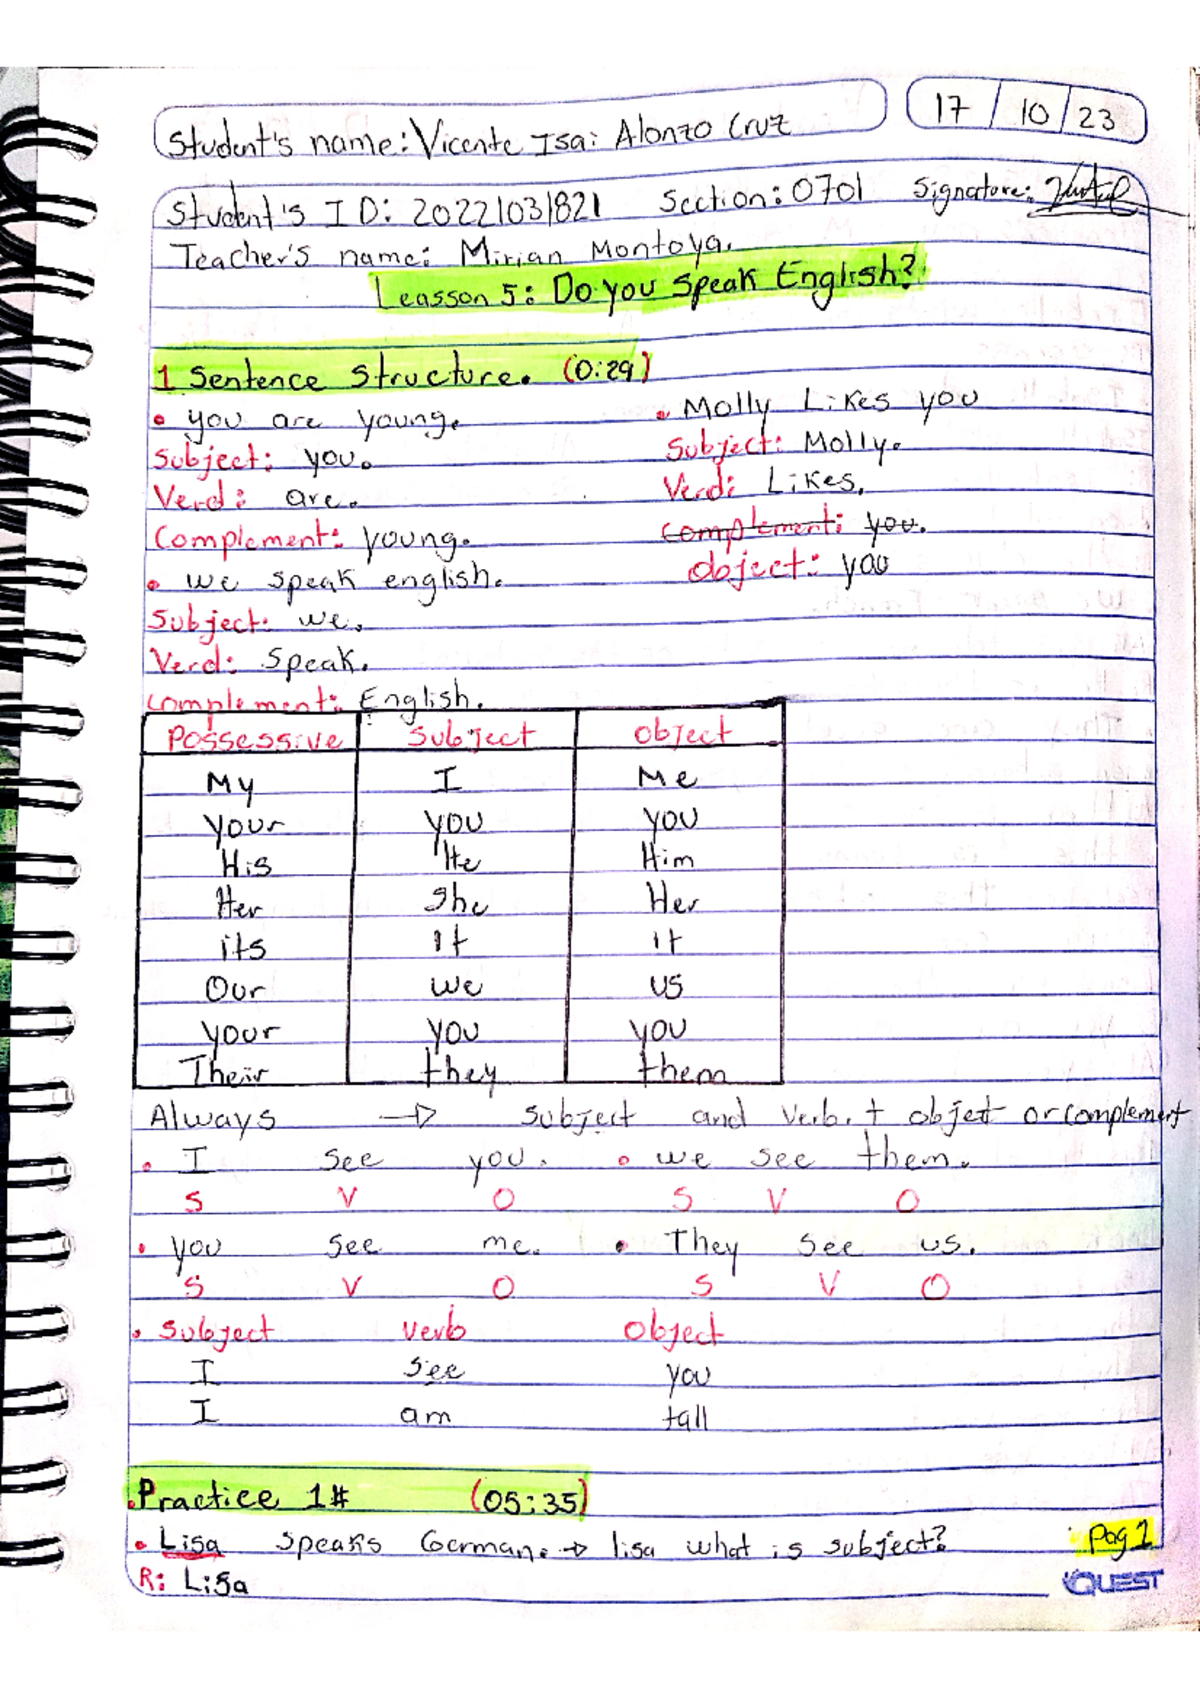 17 / 10 / 23
Student's name: Vicente Isai Alonzo Cruz
Student's ID: 20221031821 Section: 0701 Signature:
Teacher's name: Mirian Montoya.
Leasson 5: Do you speak English?
1 Sentence Structure. (0:29)
• you are young. • Molly Likes you
Subject: you. Subject: Molly.
Verd: are. Verd: Likes.
Complement: young. Complement: you.
• we speak english. object: you
Subject: we.
Verd: Speak.
Complement: English.
Possessive Subject Object
My I Me
your you you
His He Him
Her She Her
its It it
Our we us
your you you
Their they them
Always → subject and verb. + object or complement
• I see you. • we see them.
S V O S V O
• you see me. • They see us.
S V O S V O
• Subject verb Object
I see you
I am tall
•Practice 1# (05:35)
• Lisa speaks German. → lisa what is subject?
R: Lisa
pag 1
QUEST